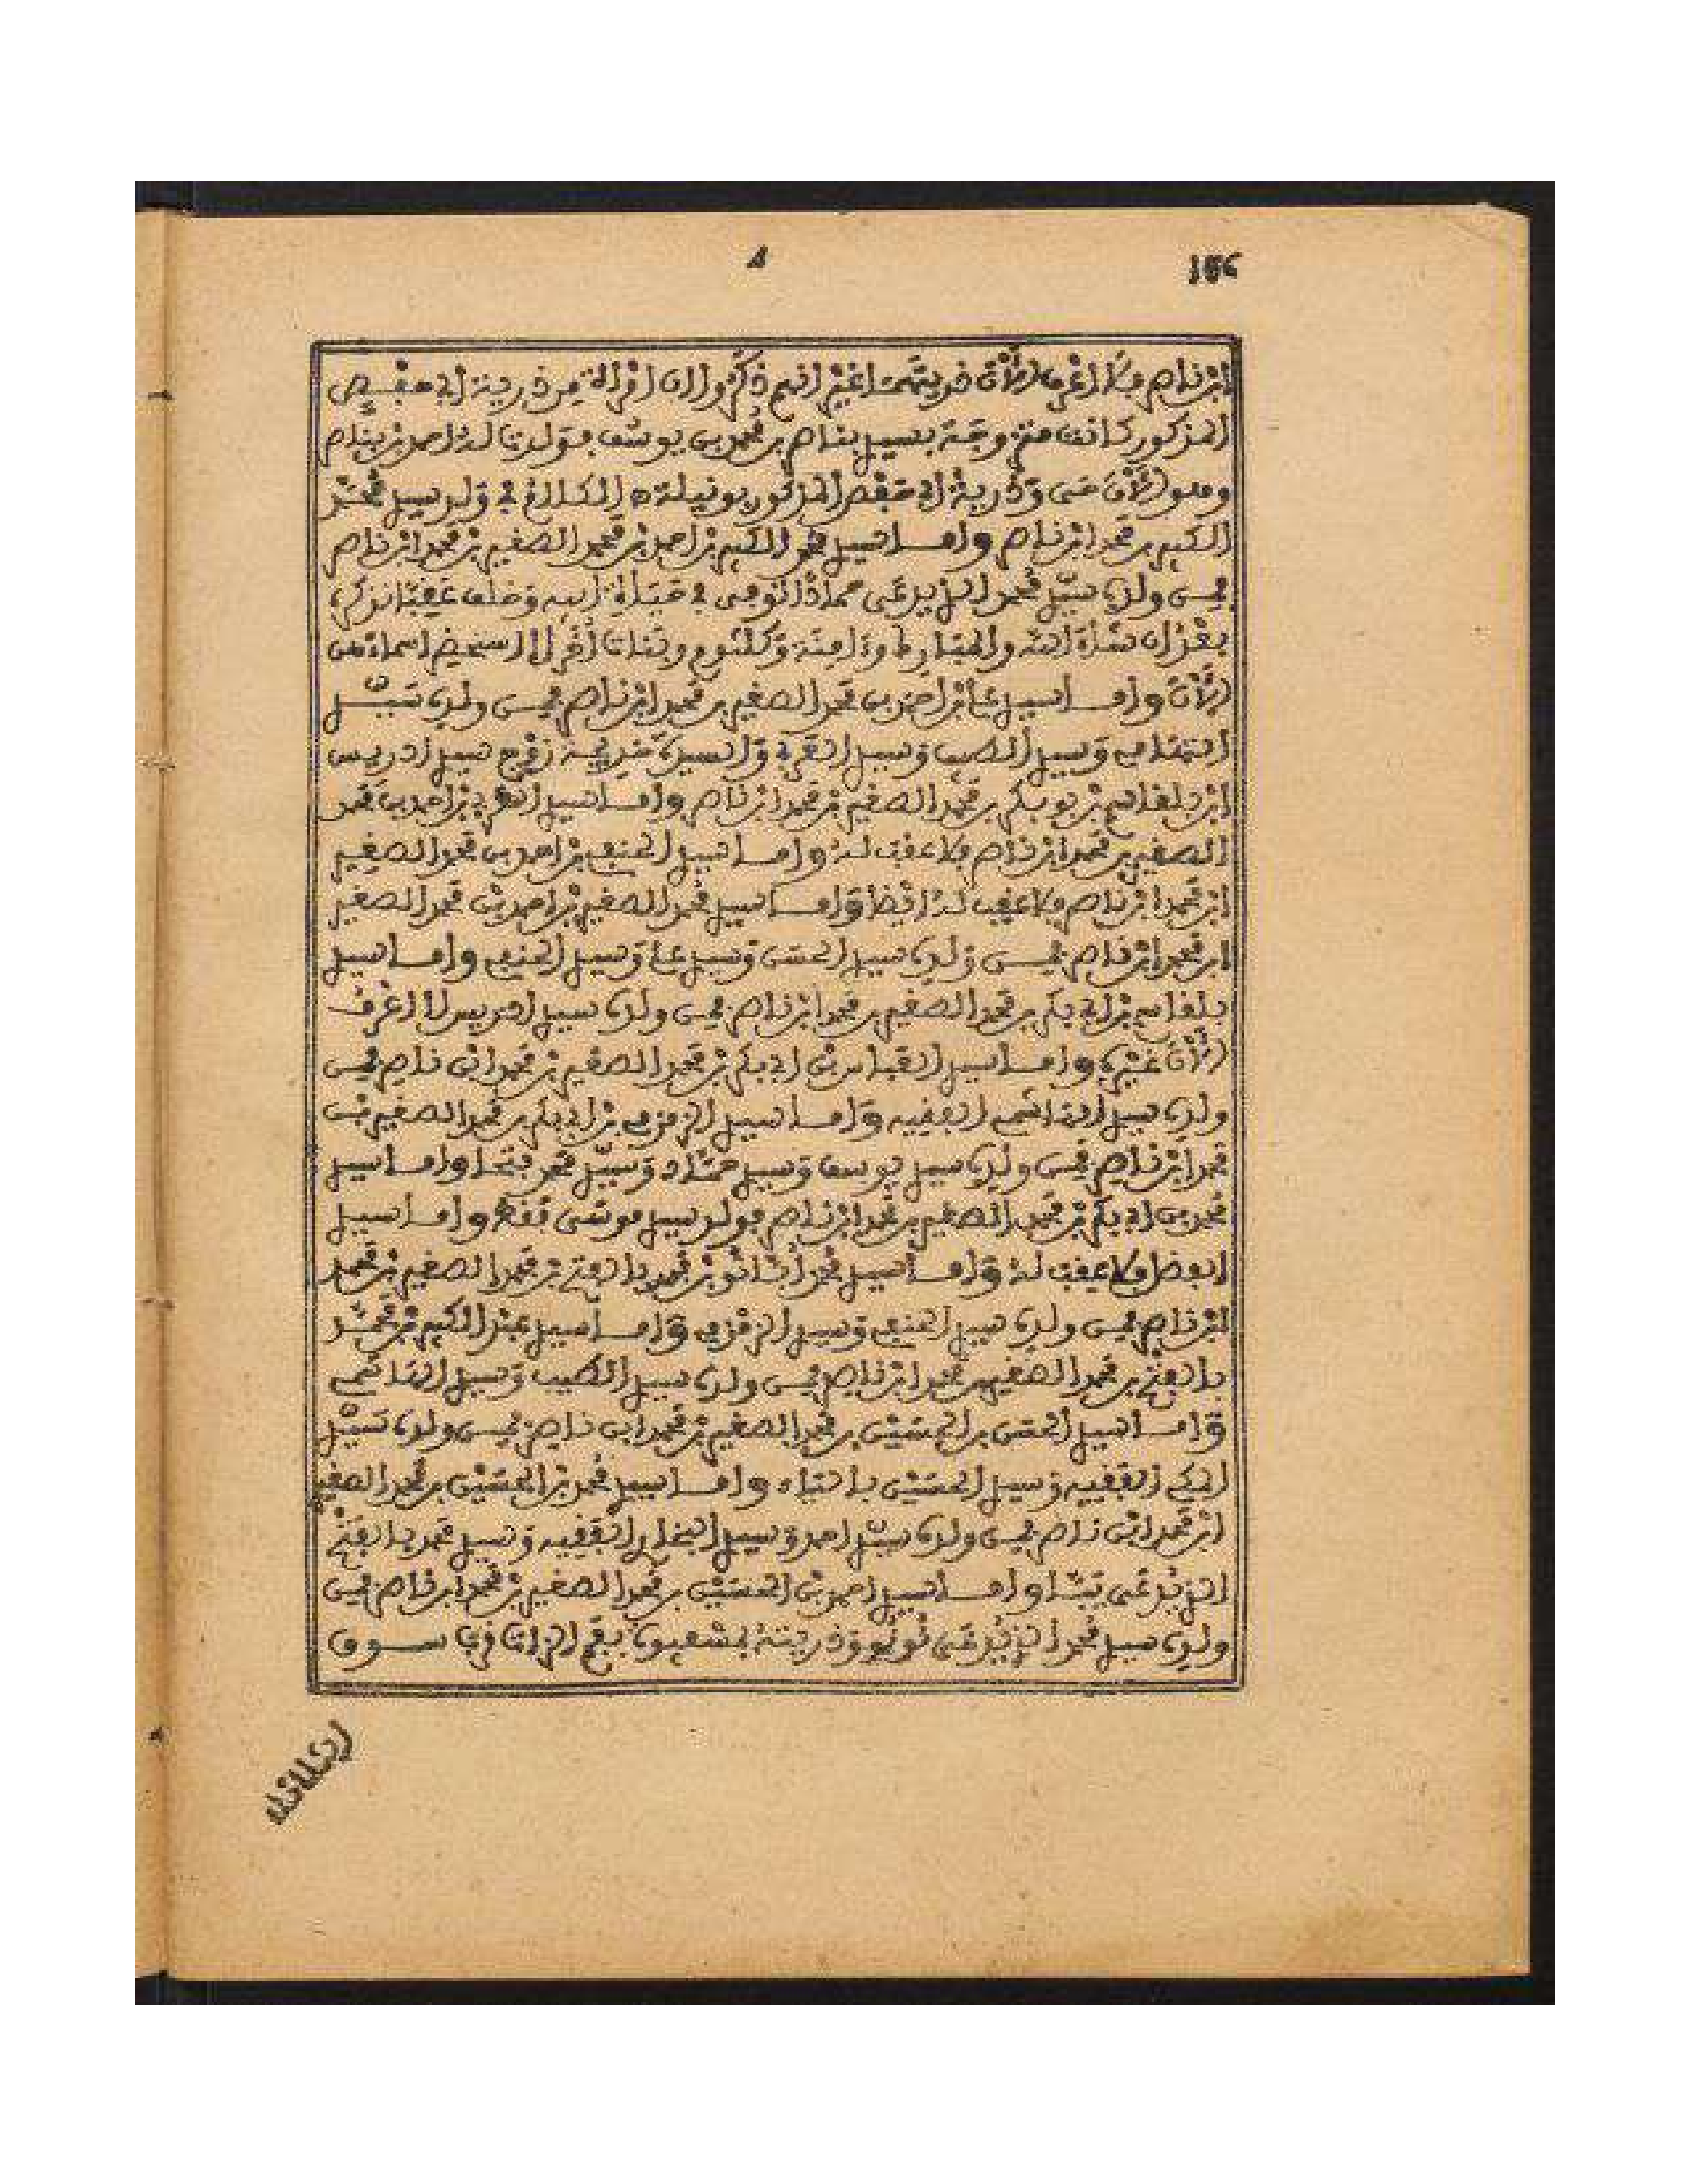 156
ابن ناصر فلا أعرف الآن ذريته غير أنهم ذكروا أن امرأة من ذرية أبي حفص
المذكور كانت متزوجة بسيدي بناصر بن محمد بن يوسف فولدت له أحمد بن بناصر
وهو الآن حي وذرية أبي حفص المذكور الكلام في ولد سيدي محمد
الكبير بن محمد ابن ناصر وأما سيدي محمد الكبير بن أحمد بن محمد الصغير بن محمد ابن ناصر
فمن ولده سيدي محمد الذي يدعى توفي في حياة أبيه وخلف عقبا نذكره
بعد إن شاء الله والمباركة وءامنة وكلثوم وبنات أخر لم أستحضر أسماءهن
الآن وأما سيدي علي بن أحمد بن محمد الصغير بن محمد ابن ناصر فمن ولده سيدي
التهامي وسيدي الطيب وسيدي العربي والسيدة خديجة زوج سيدي إدريس
ابن بلقاسم بن بوبكر بن محمد الصغير بن محمد ابن ناصر وأما سيدي العربي بن أحمد بن محمد
الصغير بن محمد ابن ناصر فلا عقب له وأما سيدي الحنفي بن أحمد بن محمد الصغير
ابن محمد ابن ناصر فلا عقب له أيضا وأما سيدي محمد الصغير بن أحمد بن محمد الصغير
ابن محمد ابن ناصر فمن ولده سيدي الحسن وسيدي علي وسيدي الحنفي وأما سيدي
بلقاسم بن أبي بكر بن محمد الصغير بن محمد ابن ناصر فمن ولده سيدي إدريس لا أعرف
الآن غيره وأما سيدي العباس بن أبي بكر بن محمد الصغير بن محمد ابن ناصر فمن
ولده سيدي الهاشمي الفقيه وأما سيدي الزمزمي بن أبي بكر بن محمد الصغير بن
محمد ابن ناصر فمن ولده سيدي يوسف وسيدي حماد وسيدي محمد فتحا وأما سيدي
محمد بن أبي بكر بن محمد الصغير بن محمد ابن ناصر فولد سيدي موسى فقط وأما سيدي
الفضل فلا عقب له وأما سيدي محمد بن محمد بالفتح بن محمد الصغير بن محمد
ابن ناصر فمن ولده سيدي الحنفي وسيدي الزمزمي وأما سيدي عبد الكبير بن محمد
بالفتح بن محمد الصغير بن محمد ابن ناصر فمن ولده سيدي الطيب وسيدي الهاشمي
وأما سيدي الحسن بن الحسين بن محمد الصغير بن محمد ابن ناصر فمن ولده سيدي
المكي الفقيه وسيدي الحسين بالياء وأما سيدي محمد بن الحسين بن محمد الصغير
ابن محمد ابن ناصر فمن ولده سيدي أحمد وسيدي البخاري الفقيه وسيدي محمد بالفتح
الذي يدعى وأما سيدي أحمد بن الحسين بن محمد الصغير بن محمد ابن ناصر فمن
ولده سيدي محمد الذي يدعى وذريته بقم الزات قرب سوق